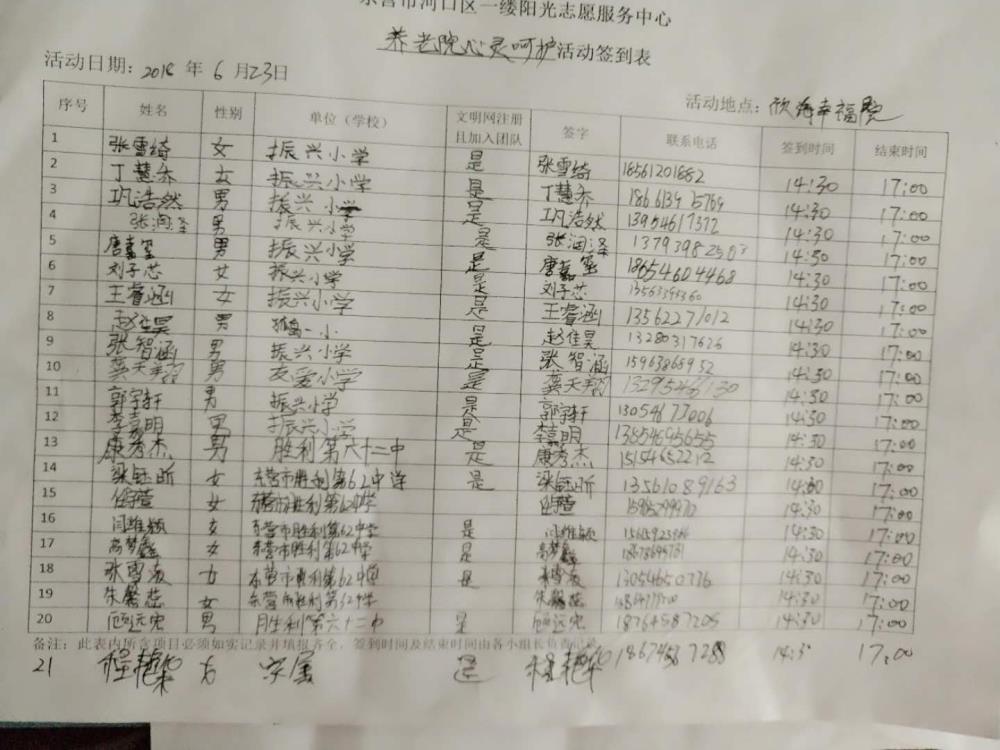 东营市河口区一缕阳光志愿服务中心
养老院心灵呵护活动签到表
活动日期：2018 年 6 月23日 活动地点：欣海幸福院
序号 姓名 性别 单位（学校） 文明网注册且加入团队 签字 联系电话 签到时间 结束时间
1 张雪绮 女 振兴小学 是 张雪绮 18561201882 14:30 17:00
2 丁慧乔 女 振兴小学 是 丁慧乔 14:30 17:00
3 巩浩然 男 振兴小学 是 巩浩然 13954617372 14:30 17:00
4 张润泽 男 振兴小学 是 张润泽 14:30 17:00
5 唐嘉玺 男 振兴小学 是 唐嘉玺 18654604468 14:30 17:00
6 刘子芯 女 振兴小学 是 刘子芯 14:30 17:00
7 王睿涵 女 振兴小学 是 王睿涵 13562271012 14:30 17:00
8 赵佳昊 男 孤岛一小 是 赵佳昊 13280317626 14:30 17:00
9 张智涵 男 振兴小学 是 张智涵 15963869932 14:30 17:00
10 龚天翔 男 友爱小学 是 龚天翔 13295466130 14:30 17:00
11 郭宇轩 男 振兴小学 是 郭宇轩 13054677006 14:30 17:00
12 李嘉明 男 振兴小学 是 李嘉明 13854695655 14:30 17:00
13 康秀杰 男 胜利第六十二中 是 康秀杰 15154652212 14:30 17:00
14 梁钰昕 女 东营市胜利第62中学 是 梁钰昕 13561089163 14:30 17:00
15 任萱 女 东营市胜利第62中学 任萱 14:30 17:00
16 闫雅颖 女 东营市胜利第62中学 是 闫雅颖 14:30 17:00
17 高梦鑫 女 东营市胜利第62中学 是 高梦鑫 14:30 17:00
18 张雪 女 东营市胜利第62中学 是 13054650776 14:30 17:00
19 朱馨蕊 女 东营市胜利第62中学 朱馨蕊 14:30 17:00
20 男 胜利第六十二中 是 18764587205 14:30 17:00
备注：此表内所含项目必须如实记录并填报齐全，签到时间及结束时间由各小组长负责记录
21 程艳荣 女 家属 是 程艳荣 14:3 17:00